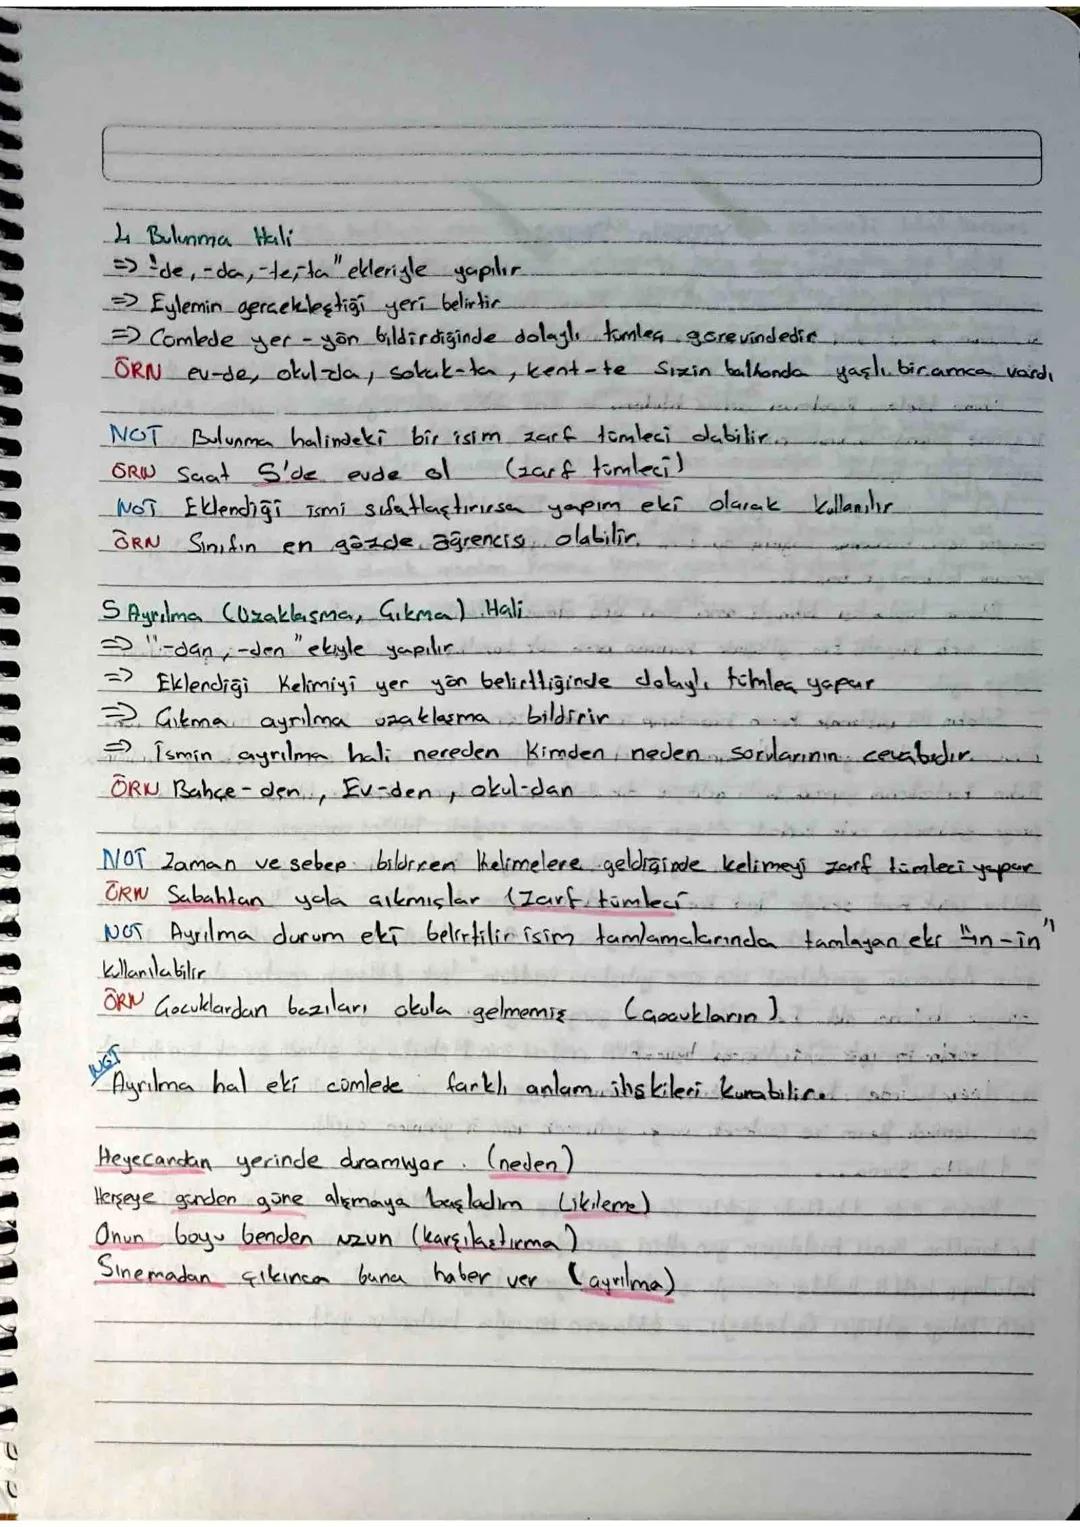 4 Bulunma Hali
=> "-de, -da, -te, -ta" ekleriyle yapılır
=> Eylemin gerçekleştiği yeri belirtir
=> Cümlede yer - yön bildirdiğinde dolaylı tümleç görevindedir
ÖRN ev-de, okul-da, sokak-ta, kent-te Sizin balkonda yaşlı bir amca vardı
NOT Bulunma halindeki bir isim zarf tümleci olabilir.
ÖRN Saat 5'de evde ol (zarf tümleci)
NOT Eklendiği ismi sıfatlaştırırsa yapım eki olarak kullanılır
ÖRN Sınıfın en gözde öğrencisi olabilir.
5 Ayrılma (Uzaklaşma, Çıkma) Hali
=> "-dan, -den" ekiyle yapılır
=> Eklendiği Kelimiyi yer yön belirttiğinde dolaylı tümleç yapar
=> Çıkma ayrılma uzaklaşma bildirir
=> İsmin ayrılma hali nereden kimden, neden sorularının cevabıdır.
ÖRN Bahçe-den, Ev-den, okul-dan
NOT Zaman ve sebep bildiren kelimelere geldiğinde kelimeyi zarf tümleci yapar
ÖRN Sabahtan yola çıkmışlar (Zarf tümleci
NOT Ayrılma durum eki belirtilir isim tamlamalarında tamlayan eki "ın-in"
kullanılabilir
ÖRN Çocuklardan bazıları okula gelmemiş (çocukların)
NOT
Ayrılma hal eki cümlede farklı anlam ilişkileri kurabilir.
Heyecandan yerinde duramıyor. (neden)
Herşeye günden güne alışmaya başladım (ikileme)
Onun boyu benden uzun (karşılaştırma)
Sinemadan çıkınca bana haber ver (ayrılma)